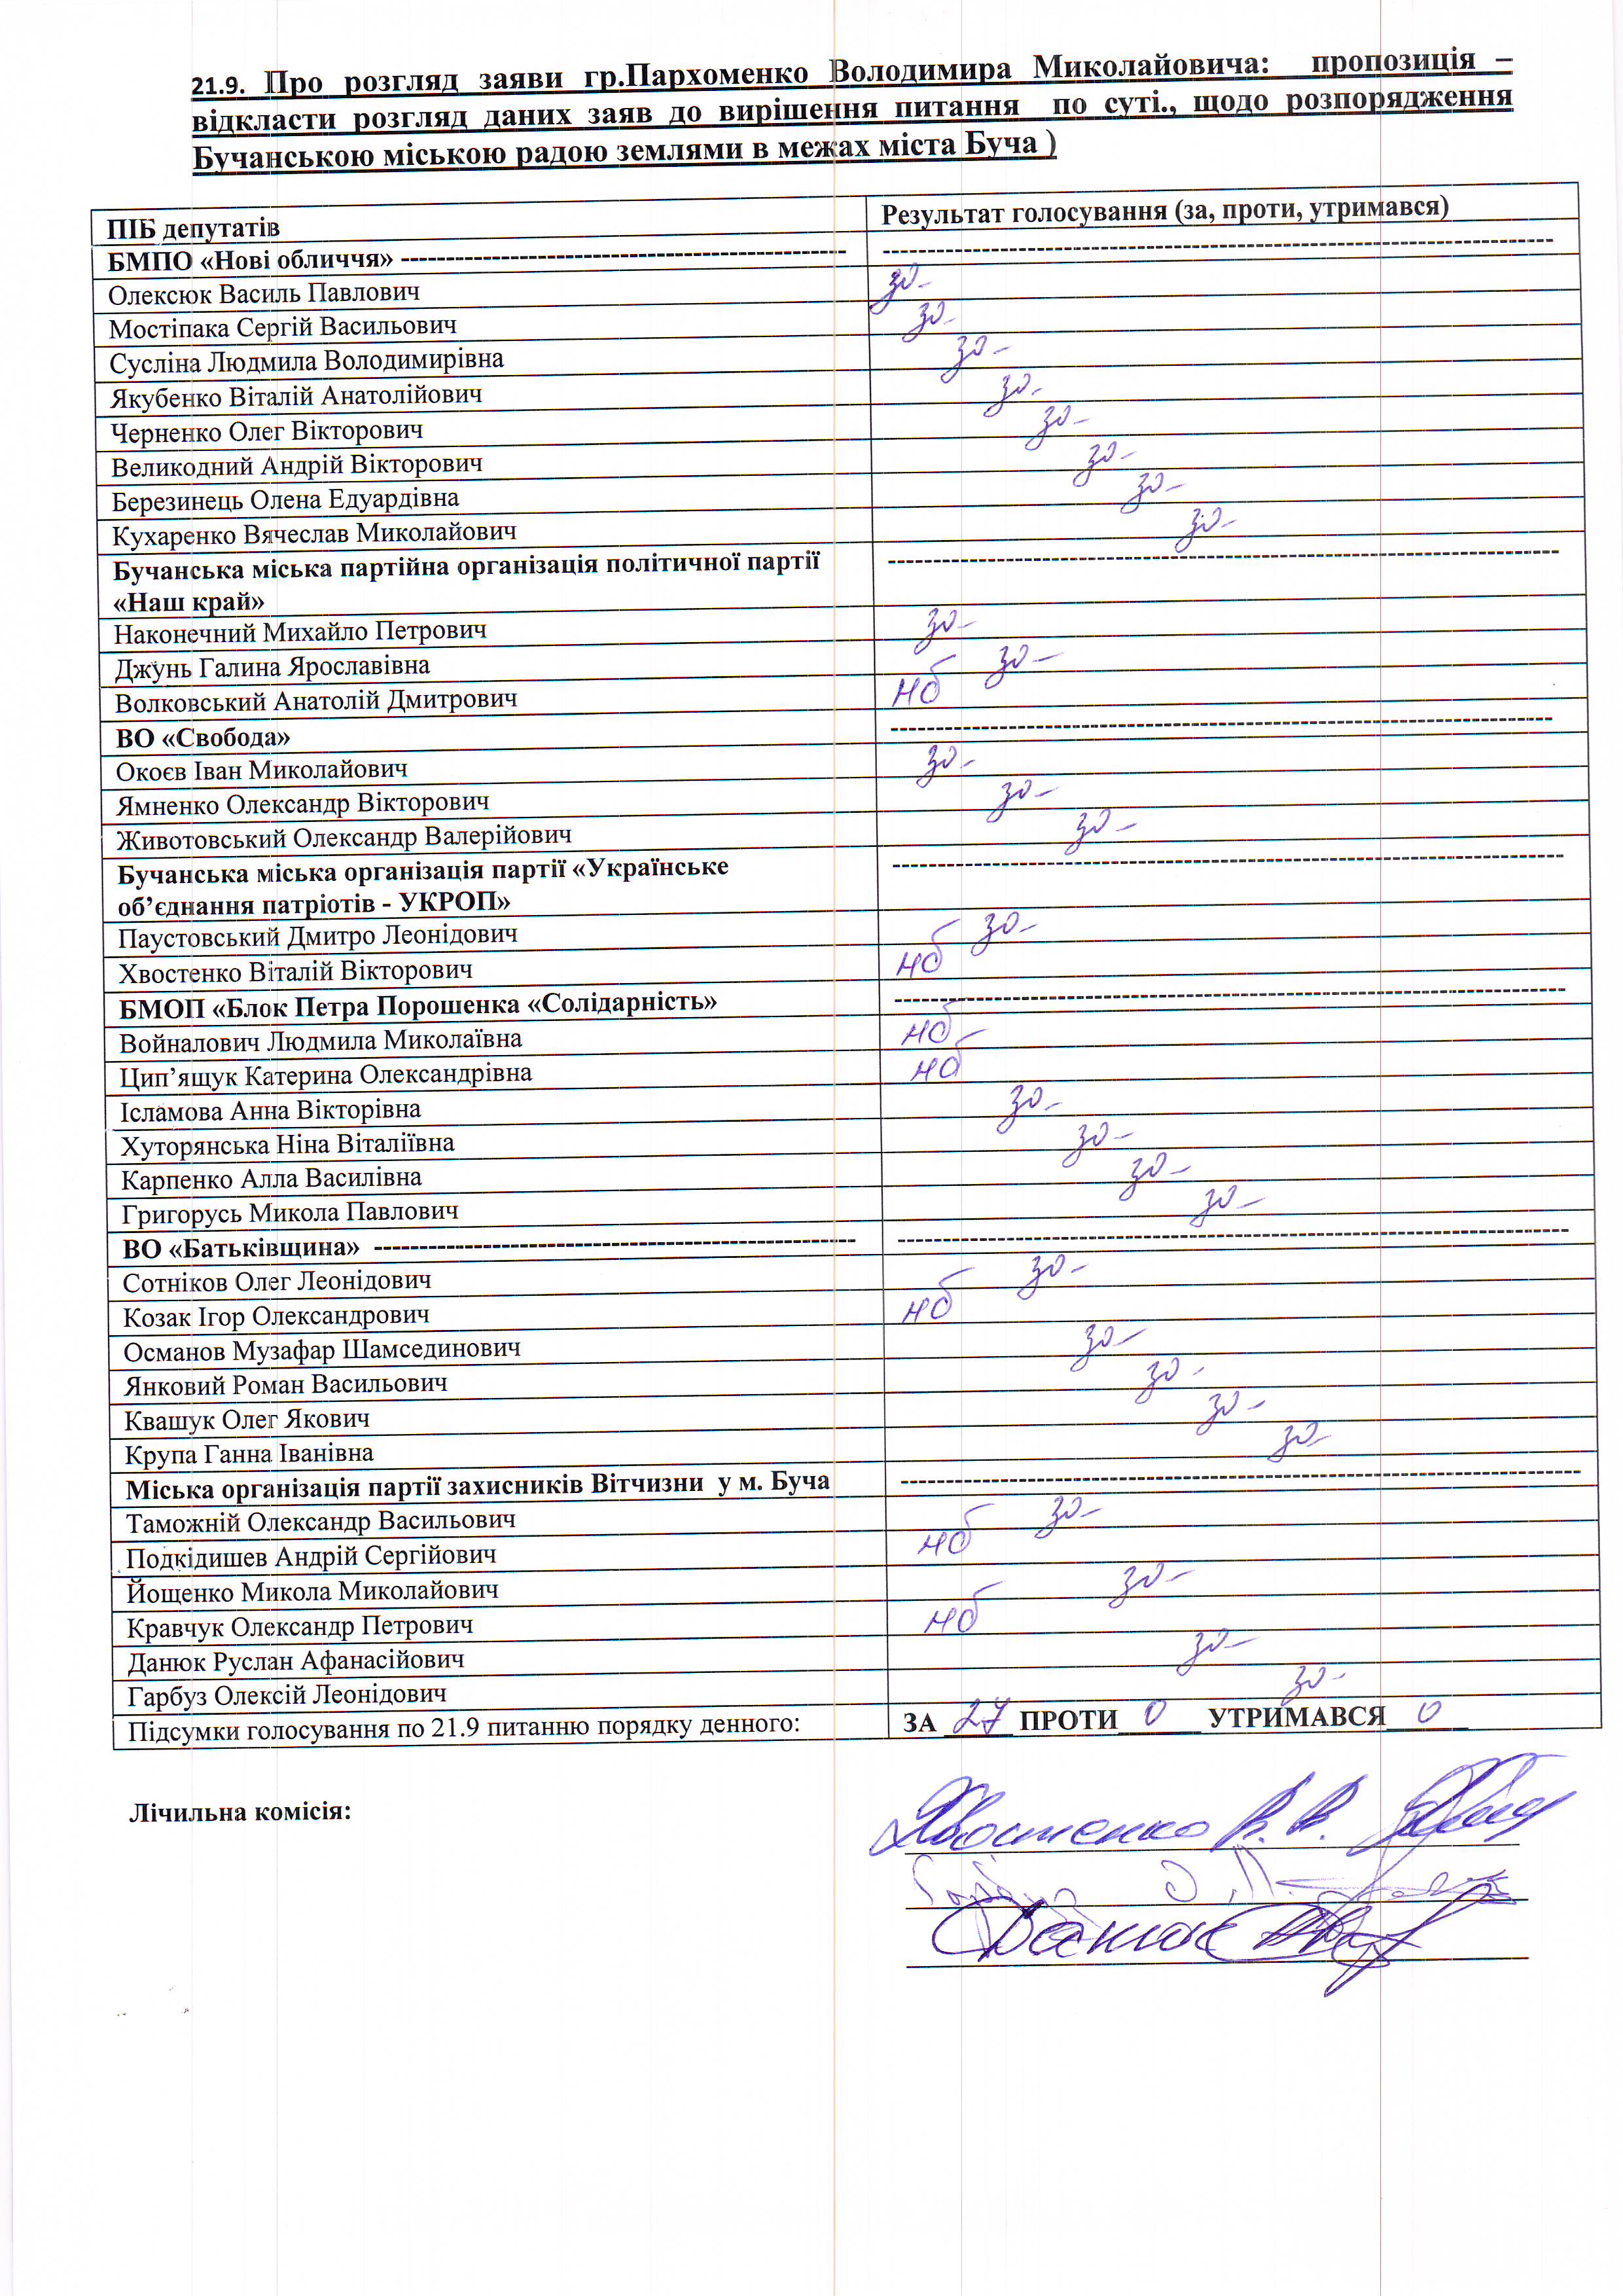 21.9. Про розгляд заяви гр.Пархоменко Володимира Миколайовича: пропозиція –
відкласти розгляд даних заяв до вирішення питання по суті., щодо розпорядження
Бучанською міською радою землями в межах міста Буча )
ПІБ депутатів Результат голосування (за, проти, утримався)
БМПО «Нові обличчя» ---------------------------------------------------
Олексюк Василь Павлович за
Мостіпака Сергій Васильович за
Сусліна Людмила Володимирівна за
Якубенко Віталій Анатолійович за
Черненко Олег Вікторович за
Великодний Андрій Вікторович за
Березинець Олена Едуардівна за
Кухаренко Вячеслав Миколайович за
Бучанська міська партійна організація політичної партії
«Наш край»
Наконечний Михайло Петрович за
Джунь Галина Ярославівна за
Волковський Анатолій Дмитрович нб
ВО «Свобода»
Окоєв Іван Миколайович за
Ямненко Олександр Вікторович за
Животовський Олександр Валерійович за
Бучанська міська організація партії «Українське
об’єднання патріотів - УКРОП»
Паустовський Дмитро Леонідович за
Хвостенко Віталій Вікторович нб
БМОП «Блок Петра Порошенка «Солідарність»
Войналович Людмила Миколаївна нб
Цип’ящук Катерина Олександрівна нб
Ісламова Анна Вікторівна за
Хуторянська Ніна Віталіївна за
Карпенко Алла Василівна за
Григорусь Микола Павлович за
ВО «Батьківщина» ---------------------------------------------------
Сотніков Олег Леонідович за
Козак Ігор Олександрович нб
Османов Музафар Шамсединович за
Янковий Роман Васильович за
Квашук Олег Якович за
Крупа Ганна Іванівна за
Міська організація партії захисників Вітчизни у м. Буча
Таможній Олександр Васильович за
Подкідишев Андрій Сергійович нб
Йощенко Микола Миколайович за
Кравчук Олександр Петрович нб
Данюк Руслан Афанасійович за
Гарбуз Олексій Леонідович за
Підсумки голосування по 21.9 питанню порядку денного: ЗА 27 ПРОТИ 0 УТРИМАВСЯ 0
Лічильна комісія:
Хвостенко В. В.
Данюк